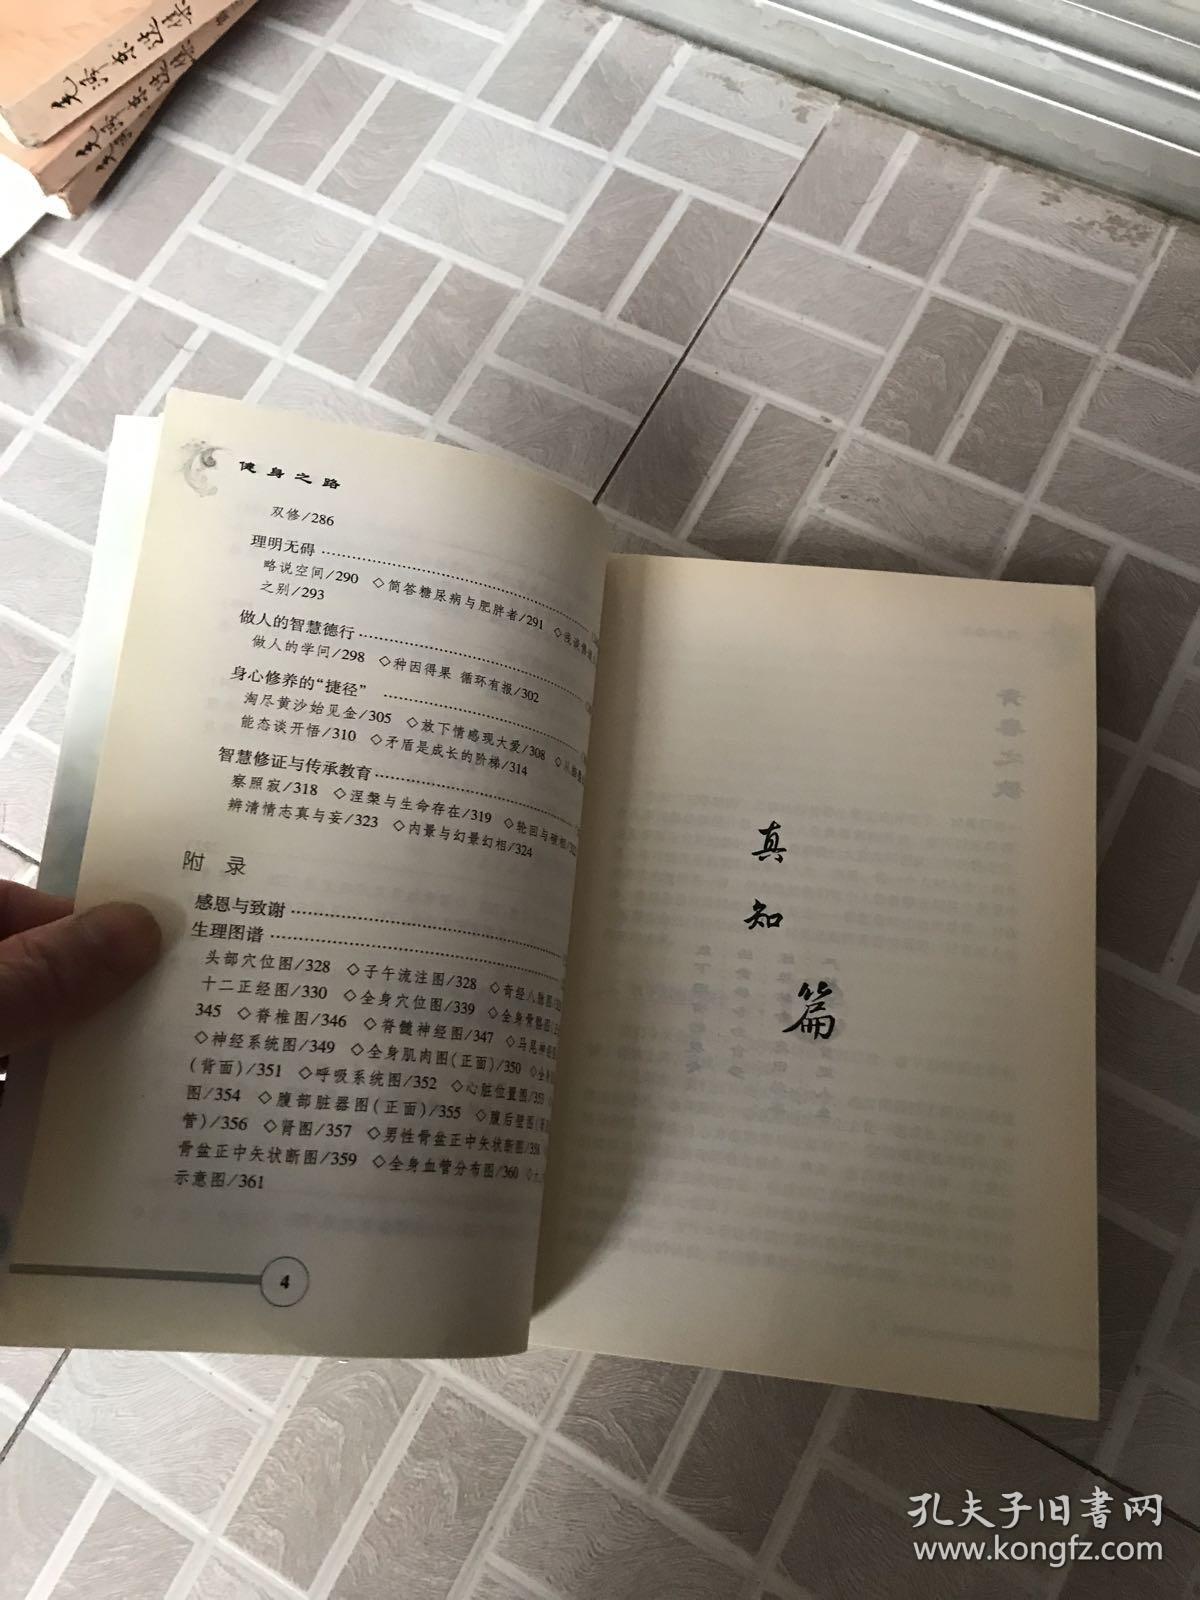 毛泽东选集
毛泽东选集
健身之路
双修/286
理明无碍
略说空间/290 ◇简答糖尿病与肥胖者/291 ◇浅谈佛道
之别/293
做人的智慧德行
做人的学问/298 ◇种因得果 循环有报/302
身心修养的“捷径”
淘尽黄沙始见金/305 ◇放下情感现大爱/308 ◇从
能态谈开悟/310 ◇矛盾是成长的阶梯/314
智慧修证与传承教育
察照寂/318 ◇涅槃与生命存在/319 ◇轮回与破相/322
辨清情志真与妄/323 ◇内景与幻景幻相/324
附 录
感恩与致谢
生理图谱
头部穴位图/328 ◇子午流注图/328 ◇奇经八脉图
十二正经图/330 ◇全身穴位图/339 ◇全身骨骼图
345 ◇脊椎图/346 ◇脊髓神经图/347 ◇马尾神经
◇神经系统图/349 ◇全身肌肉图(正面)/350 ◇全身
(背面)/351 ◇呼吸系统图/352 ◇心脏位置图/353
图/354 ◇腹部脏器图(正面)/355 ◇腹后壁图
管)/356 ◇肾图/357 ◇男性骨盆正中矢状断图/358
骨盆正中矢状断图/359 ◇全身血管分布图/360
示意图/361
4
真知篇
孔夫子旧书网
www.kongfz.com